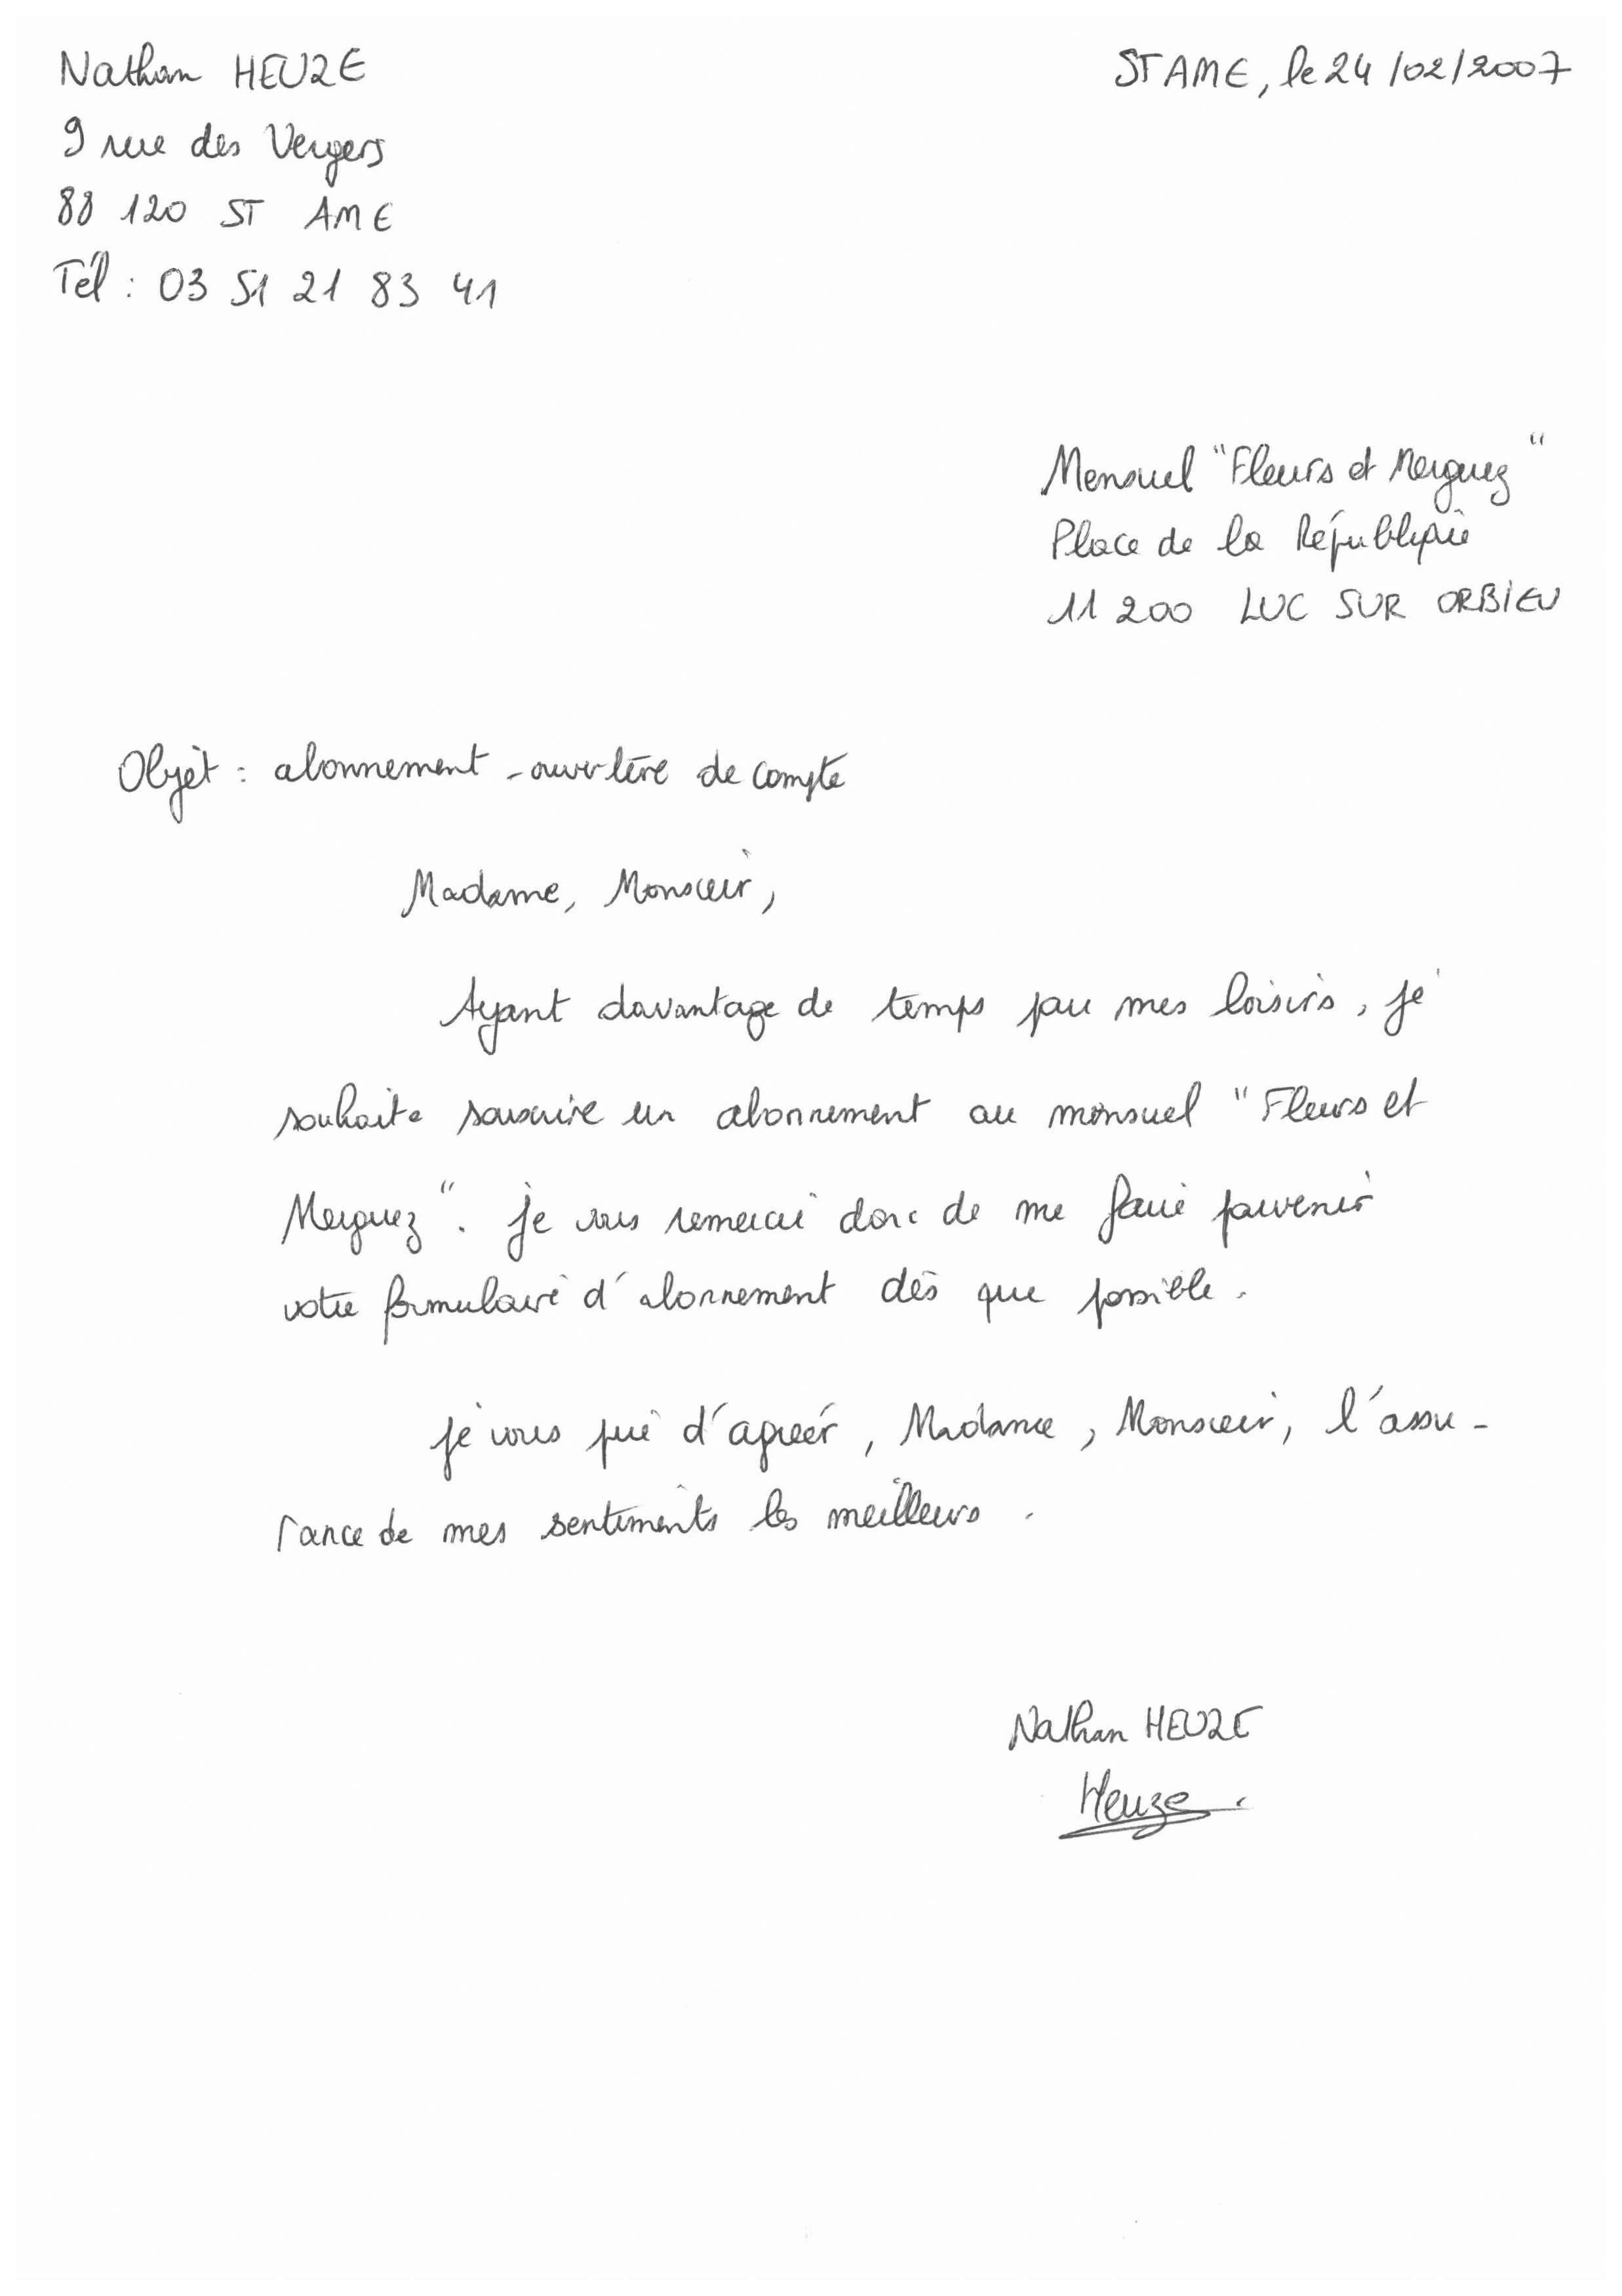 Nathan HEUZE
STAME, le 24/02/2007
9 rue des Vergers
88 120 ST AME
Tél : 03 51 21 83 41
Mensuel "Fleurs et Merguez"
Place de la République
11 200 LUC SUR ORBIEU
Objet : abonnement - ouverture de compte
Madame, Monsieur,
Ayant davantage de temps pour mes loisirs, je
souhaite souscrire un abonnement au mensuel "Fleurs et
Merguez". Je vous remercie donc de me faire parvenir
votre formulaire d'abonnement dès que possible.
Je vous prie d'agréer, Madame, Monsieur, l'assu-
rance de mes sentiments les meilleurs.
Nathan HEUZE
Heuze.